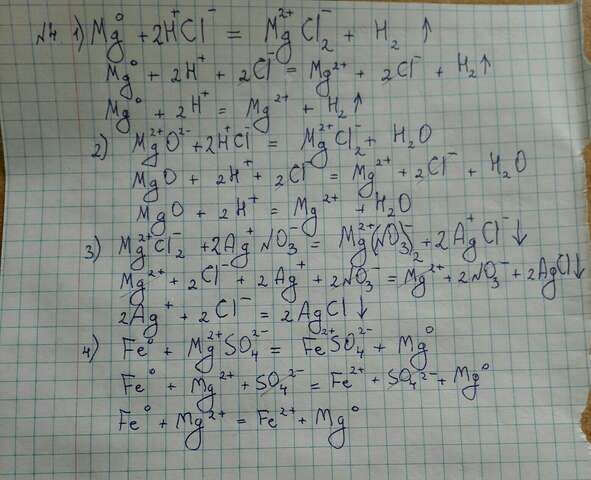 №4. 1) Mg⁰ + 2H⁺Cl⁻ = Mg²⁺Cl₂⁻ + H₂ ↑
Mg⁰ + 2H⁺ + 2Cl⁻ = Mg²⁺ + 2Cl⁻ + H₂↑
Mg⁰ + 2H⁺ = Mg²⁺ + H₂↑
2) Mg²⁺O²⁻ + 2H⁺Cl⁻ = Mg²⁺Cl₂⁻ + H₂O
MgO + 2H⁺ + 2Cl⁻ = Mg²⁺ + 2Cl⁻ + H₂O
MgO + 2H⁺ = Mg²⁺ + H₂O
3) Mg²⁺Cl₂⁻ + 2Ag⁺NO₃⁻ = Mg²⁺(NO₃)₂⁻ + 2Ag⁺Cl⁻↓
Mg²⁺ + 2Cl⁻ + 2Ag⁺ + 2NO₃⁻ = Mg²⁺ + 2NO₃⁻ + 2AgCl↓
2Ag⁺ + 2Cl⁻ = 2AgCl↓
4) Fe⁰ + Mg²⁺SO₄²⁻ = Fe²⁺SO₄²⁻ + Mg⁰
Fe⁰ + Mg²⁺ + SO₄²⁻ = Fe²⁺ + SO₄²⁻ + Mg⁰
Fe⁰ + Mg²⁺ = Fe²⁺ + Mg⁰